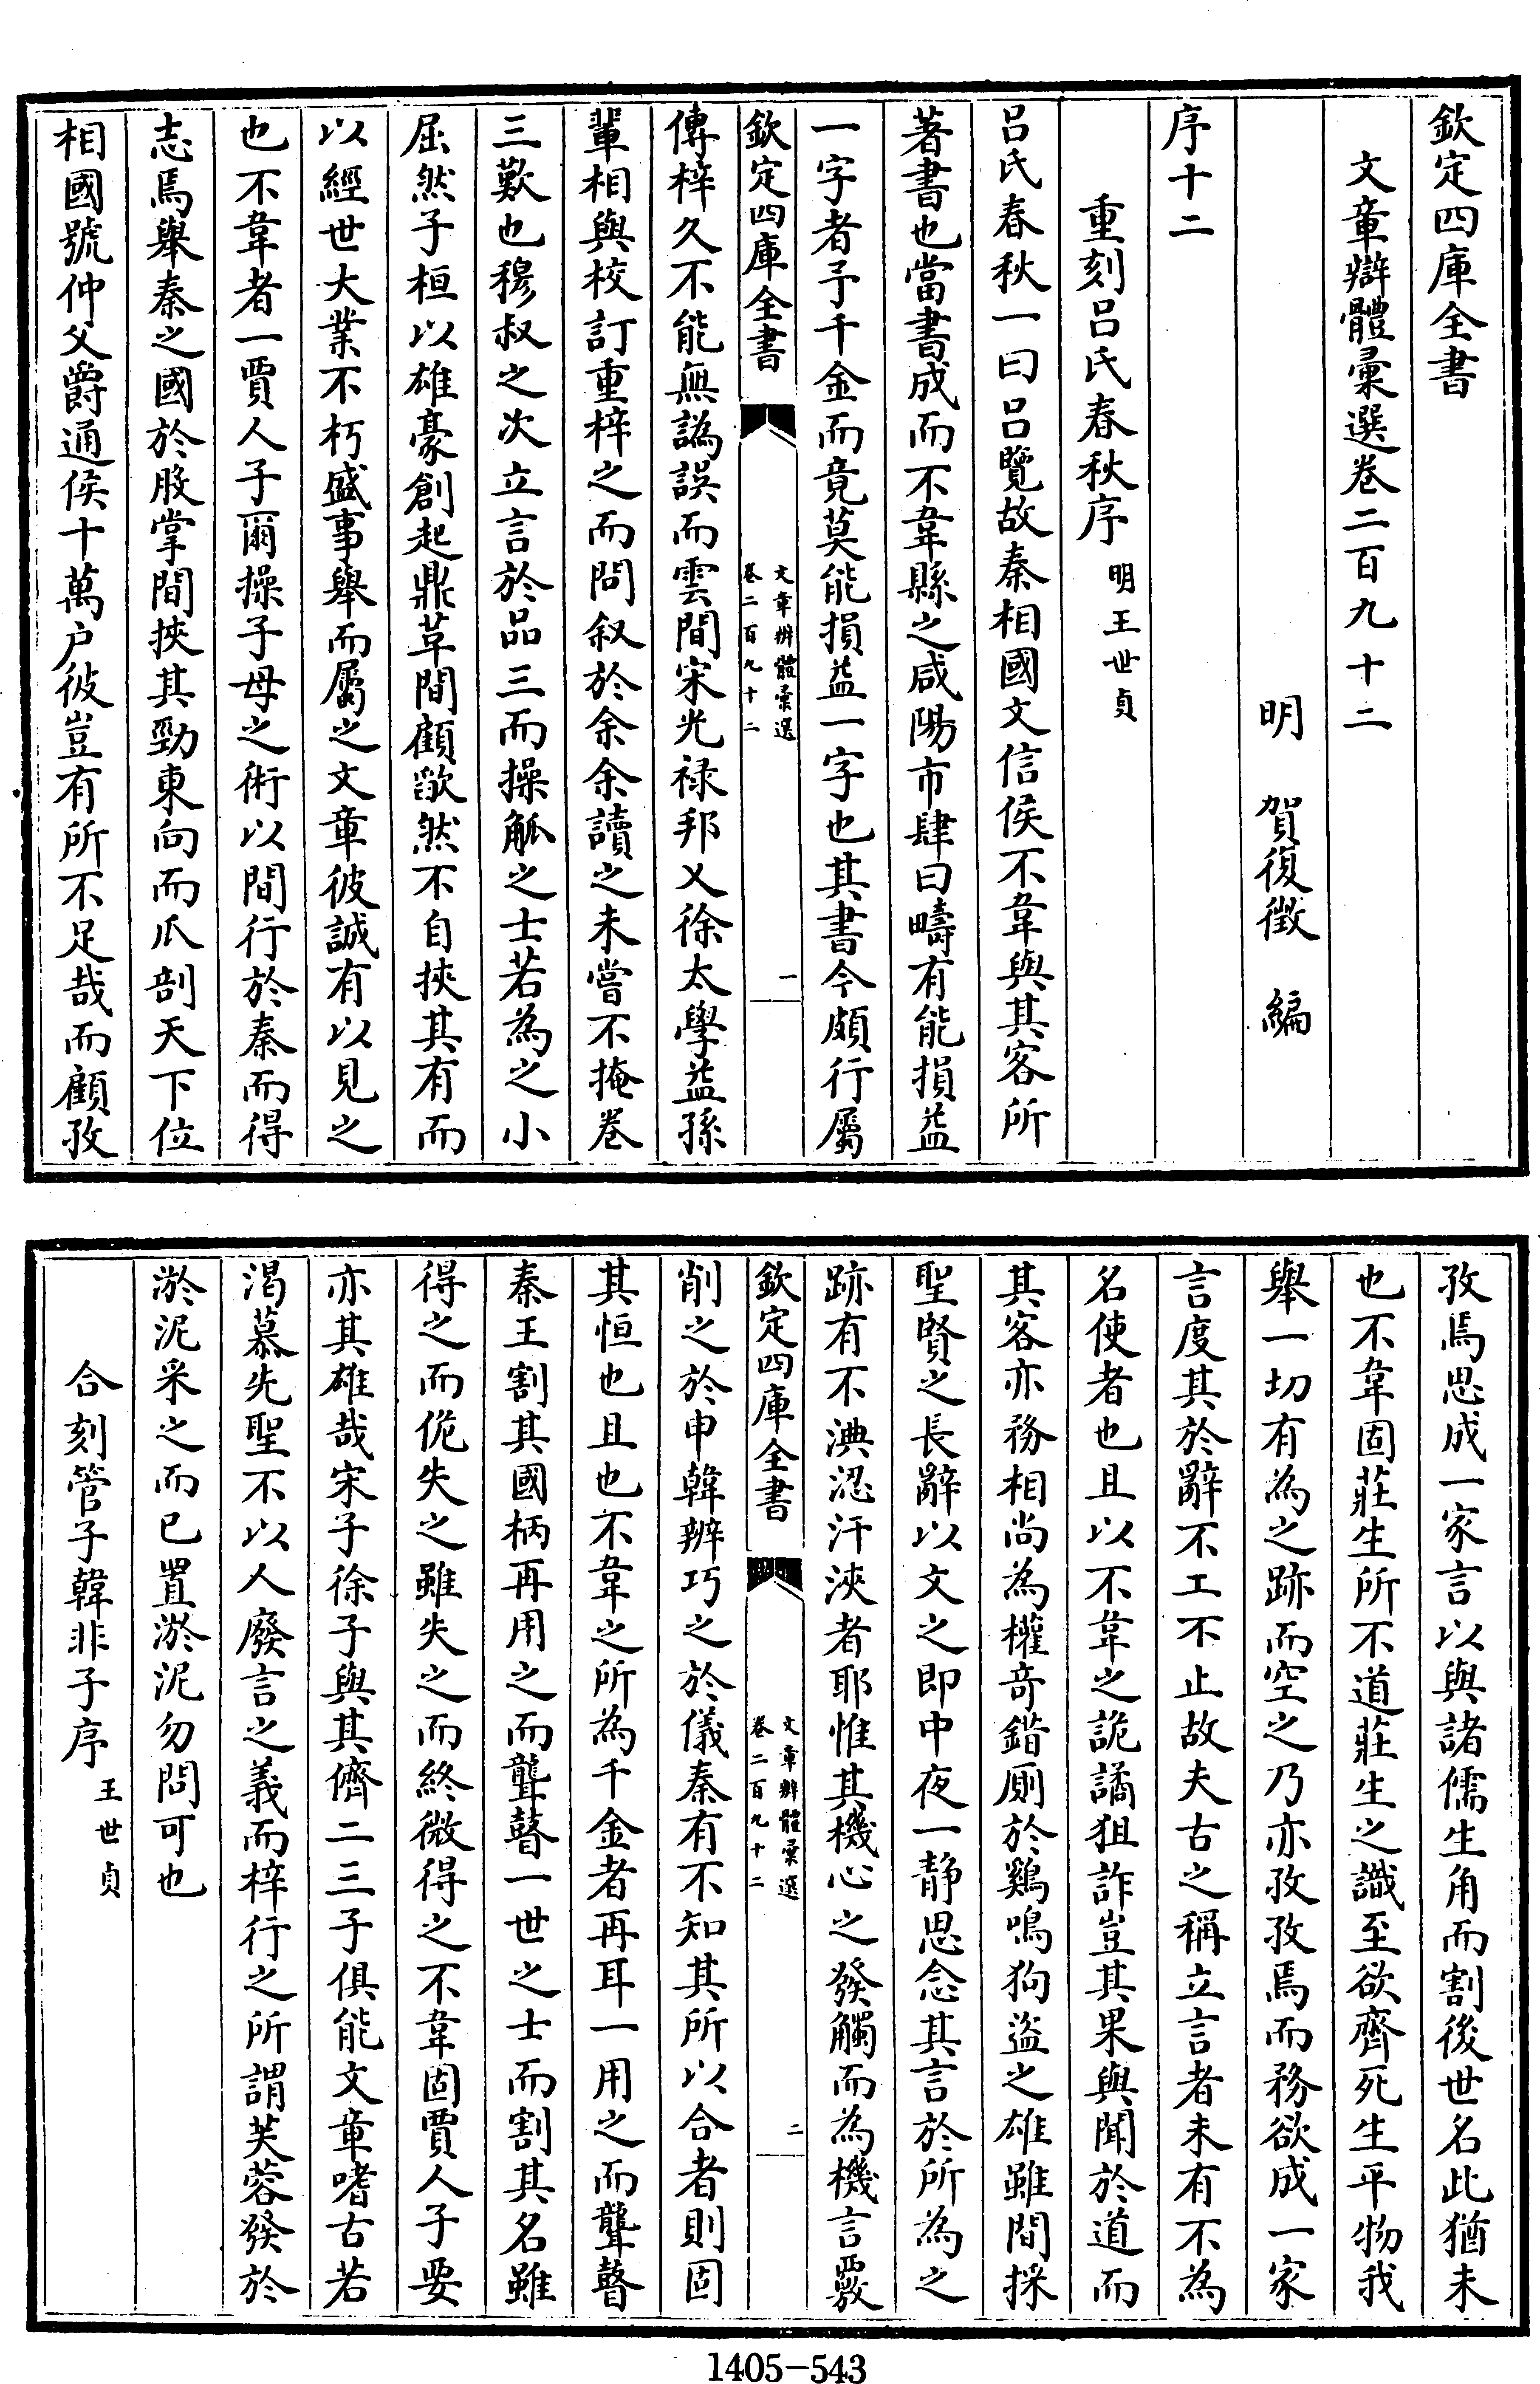 欽定四庫全書
文章辯體彙選卷二百九十二
明　賀復徴　編
序十二
重刻吕氏春秋序　明王世貞
吕氏春秋一曰吕覽故秦相國文信侯不韋與其客所
著書也當書成而不韋縣之咸陽市肆曰疇有能損益
一字者予千金而竟莫能損益一字也其書今頗行屬
欽定四庫全書
文章辨體彙選
卷二百九十二
一
傳梓久不能無譌誤而雲間宋光禄邦乂徐太學益孫
輩相與校訂重梓之而問叙於余余讀之未嘗不掩卷
三歎也穆叔之次立言於品三而操觚之士若為之小
屈然子桓以雄豪創起鼎革間顧歉然不自挾其有而
以經世大業不朽盛事舉而屬之文章彼誠有以見之
也不韋者一賈人子爾操子母之術以間行於秦而得
志焉舉秦之國於股掌間挾其勁東向而瓜剖天下位
相國號仲父爵通侯十萬户彼豈有所不足哉而顧孜
孜焉思成一家言以與諸儒生角而割後世名此猶未
也不韋固莊生所不道莊生之識至欲齊死生平物我
舉一切有為之跡而空之乃亦孜孜焉而務欲成一家
言度其於辭不工不止故夫古之稱立言者未有不為
名使者也且以不韋之詭譎狙詐豈其果與聞於道而
其客亦務相尚為權奇錯厠於鷄鳴狗盗之雄雖間採
聖賢之長辭以文之即中夜一靜思念其言於所為之
跡有不淟涊汗浹者耶惟其機心之發觸而為機言覈
欽定四庫全書
文章辨體彙選
卷二百九十二
二
削之於申韓辨巧之於儀秦有不知其所以合者則固
其恒也且也不韋之所為千金者再耳一用之而聾瞽
秦王割其國柄再用之而聾瞽一世之士而割其名雖
得之而俛失之雖失之而終微得之不韋固賈人子要
亦其雄哉宋子徐子與其儕二三子俱能文章嗜古若
渴慕先聖不以人廢言之義而梓行之所謂芙蓉發於
淤泥采之而已置淤泥勿問可也
合刻管子韓非子序　王世貞
1405-543